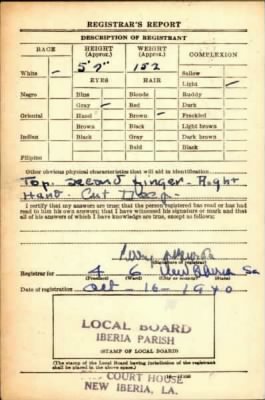 REGISTRAR'S REPORT
DESCRIPTION OF REGISTRANT
RACE HEIGHT (Approx.) WEIGHT (Approx.) COMPLEXION
5' 7" 152 Sallow
White EYES HAIR Light
Negro Blue Blonde Ruddy
Gray Red Dark
Oriental Hazel Brown Freckled
Brown Black Light brown
Indian Black Gray Dark brown
Bald Black
Filipino
Other obvious physical characteristics that will aid in identification
Top. second finger - Right
Hand - Cut
I certify that my answers are true; that the person registered has read or has had
read to him his own answers; that I have witnessed his signature or mark and that
all of his answers of which I have knowledge are true, except as follows:
(Signature of registrar)
Registrar for 4 6 New Iberia La
(Precinct) (Ward) (City or county) (State)
Date of registration Oct - 16 - 1940
LOCAL BOARD
IBERIA PARISH
(STAMP OF LOCAL BOARD)
(The stamp of the Local Board having jurisdiction of the registrant
shall be placed in the above space.)
COURT HOUSE
NEW IBERIA, LA.